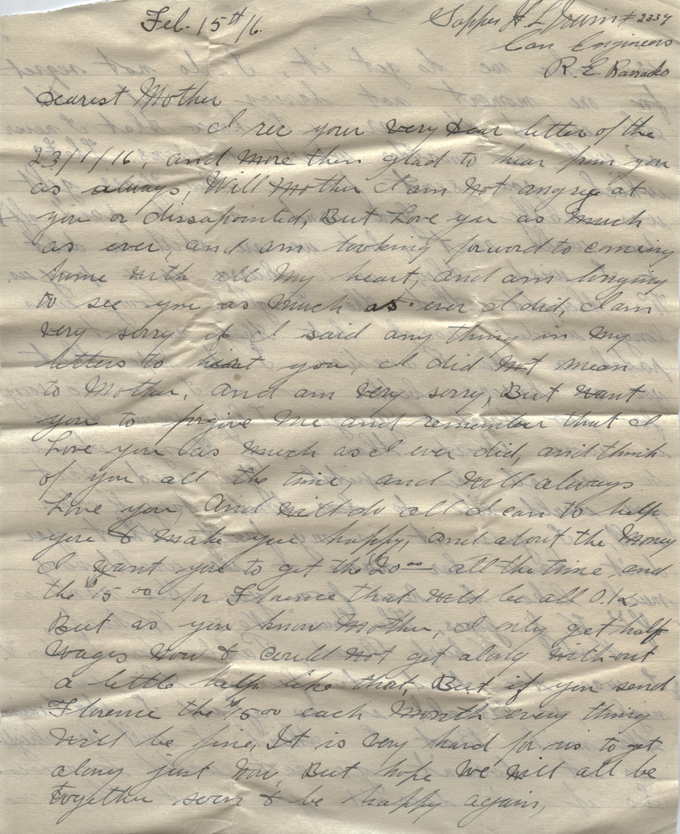 Feb. 15th/16.
Sapper H. L. # 2334
Can. Engineers
R. E. Barracks
Dearest Mother
I rec your very dear letter of the
23/1/16, and more then glad to hear from you
as always, Will Mother I am not angry at
you or dissapointed, But Love you as much
as ever, and am looking forword to coming
home with all my heart, and am longing
to see you as much as ever I did, I am
very sorry if I said any thing in my
letters to hurt you I did not mean
to Mother, and am very sorry, But want
you to forgive me and remember that I
Love you as much as I ever did, and think
of you all the time and will always
Love you, And will do all I can to help
you & make you happy, and about the money
I want you to get the 20.00 all the time, and
the $15.00 for Florence that will be all O.K.
But as you know Mother, I only get half
wages now & could not get along with-out
a little help like that, But if you send
Florence the $15.00 each month every thing
will be fine, It is very hard for us to get
along just now, But hope we will all be
together soon & be happy again,